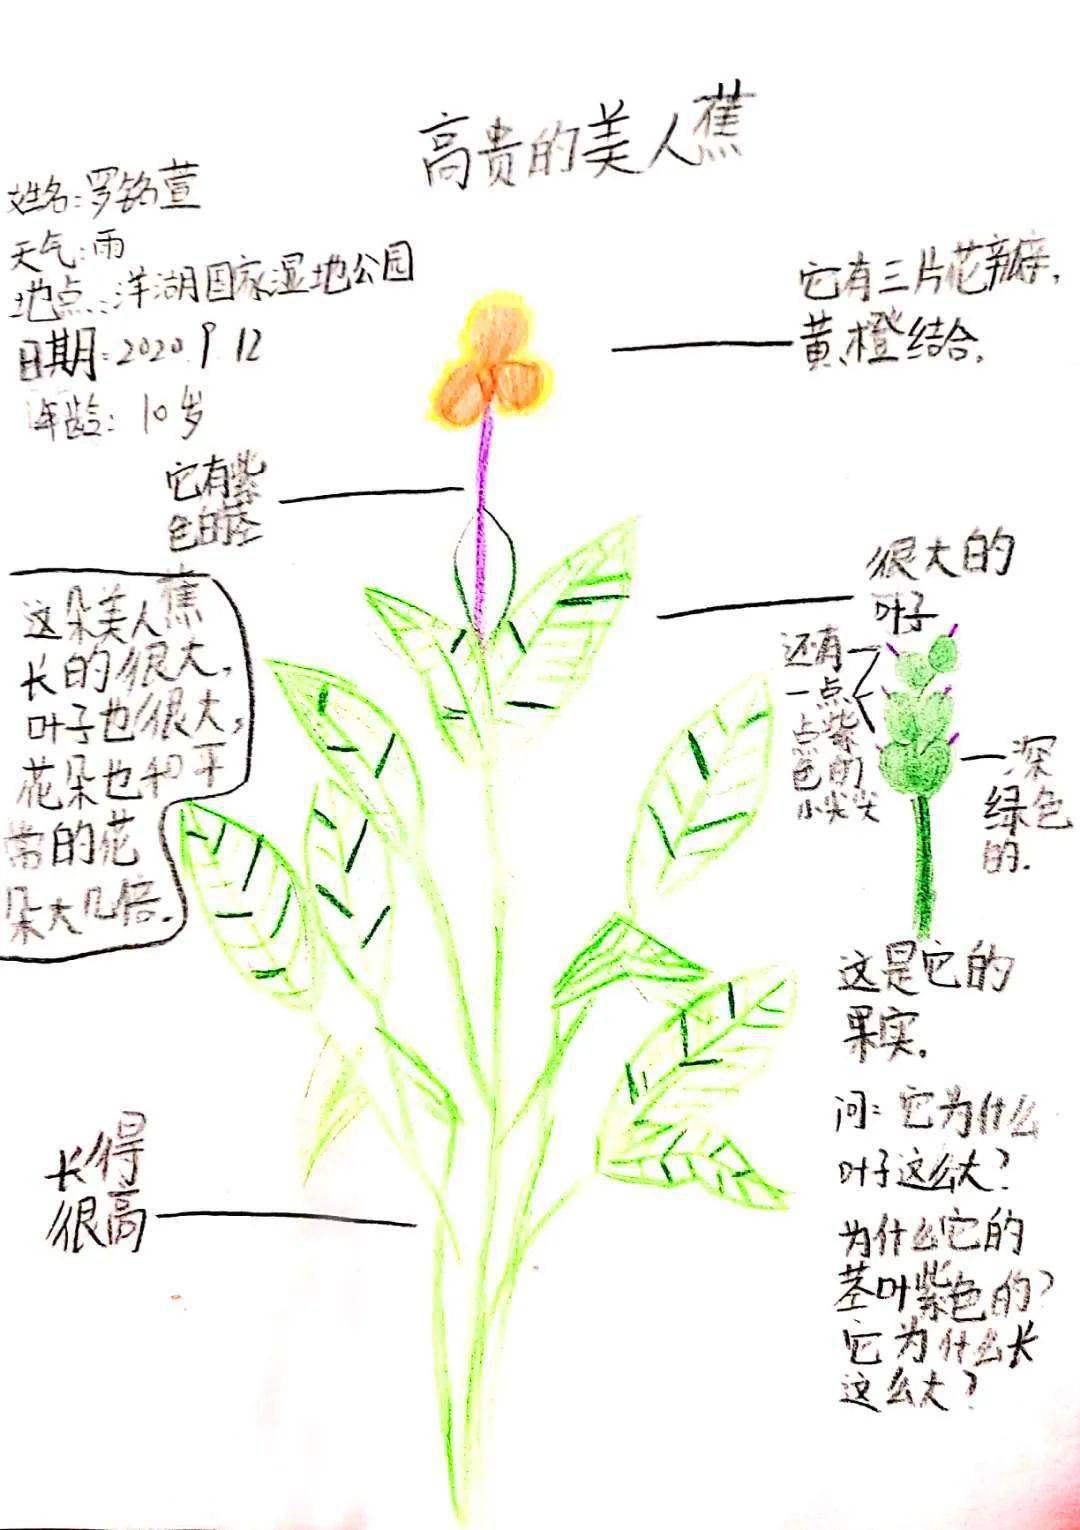 高贵的美人蕉
姓名:罗铭萱
天气:雨
地点:洋湖国家湿地公园
日期:2020.9.12
年龄:10岁
它有三片花瓣,
黄、橙结合。
它有紫
色的茎
很大的
叶子
这朵美人蕉
长的很大,
叶子也很大,
花朵也和平
常的花
朵大几倍。
还有
一点
点紫
色的
小尖尖
深
绿色
的.
这是它的
果实。
长得
很高
问:它为什么
叶子这么大?
为什么它的
茎叶紫色的?
它为什么长
这么大?